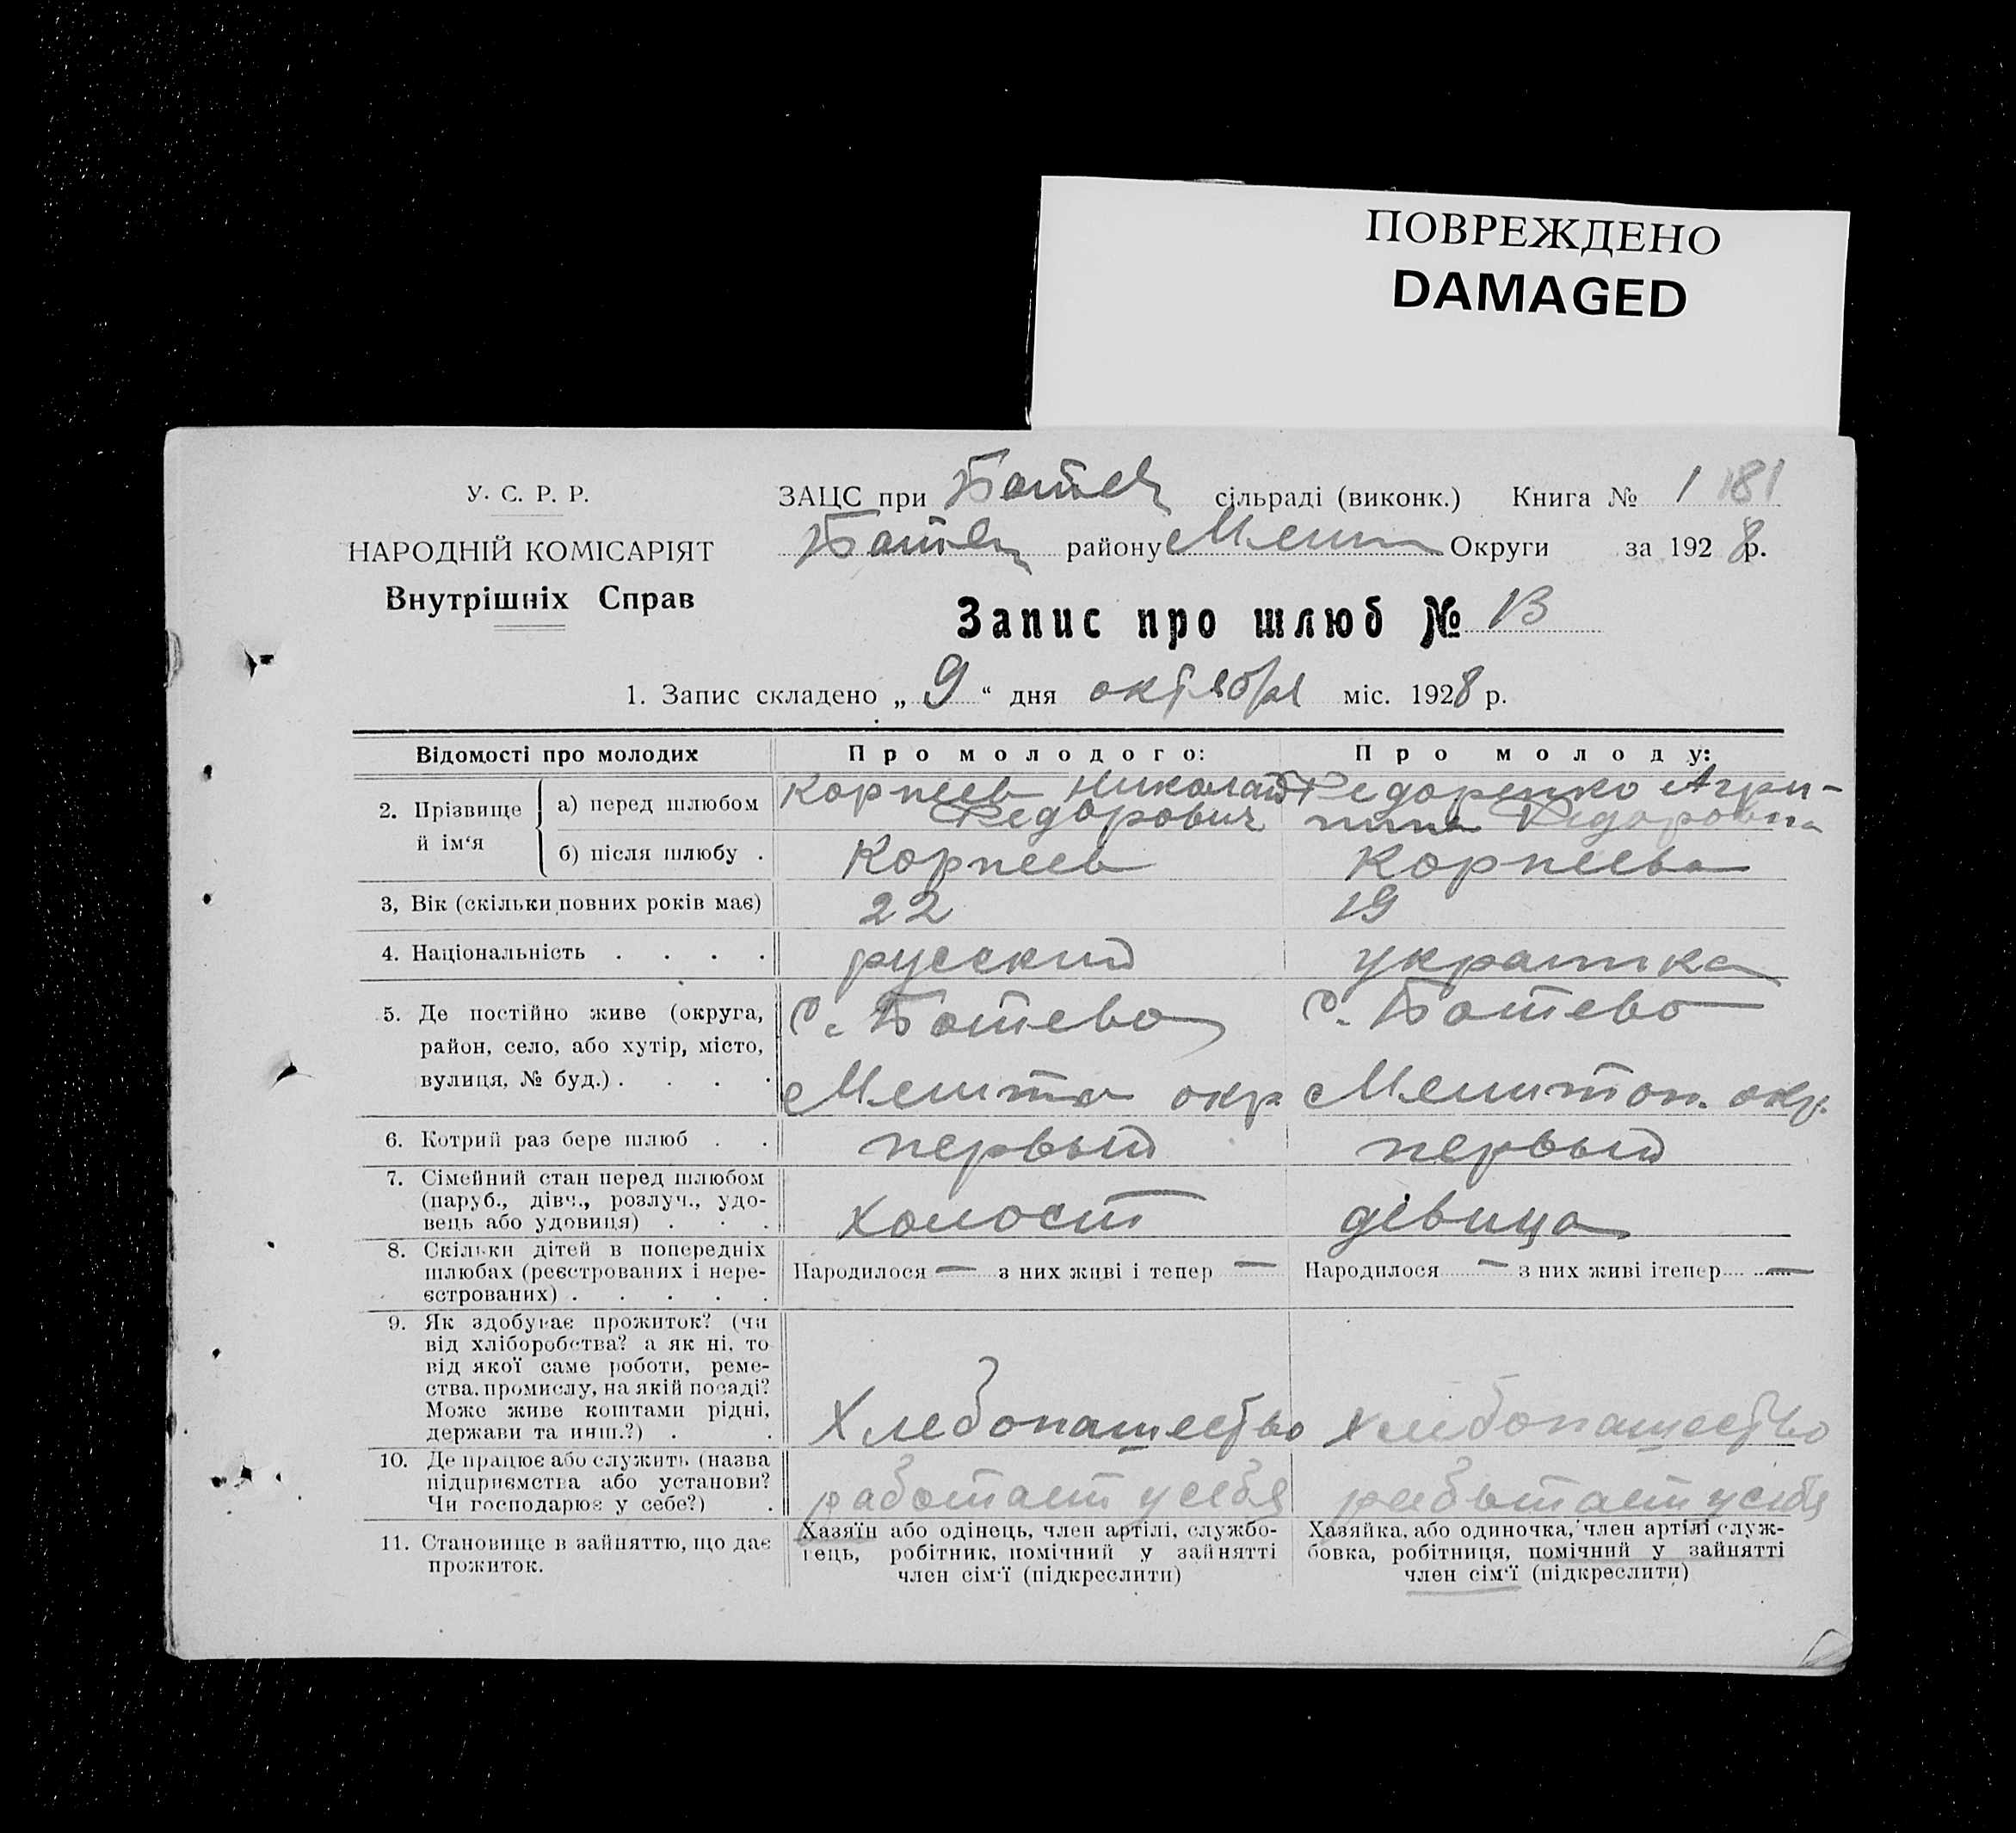 ПОВРЕЖДЕНО
DAMAGED
У. С. Р. Р.
НАРОДНІЙ КОМІСАРІЯТ
Внутрішніх Справ
ЗАЦС при Ботев сільраді (виконк.) Книга № 1 181
Ботев району Мелит Округи за 1928 р.
Запис про шлюб № 13
1. Запис складено „ 9 “ дня октября міс. 1928 р.
Відомості про молодих Про молодого: Про молоду:
2. Прізвище й ім‘я
а) перед шлюбом Корнеев Николай Федорович Федоренко Агри-
пина Федоровна
б) після шлюбу . Корнеев Корнеева
3, Вік (скільки повних років має) 22 19
4. Національність . . . . русский украинка
5. Де постійно живе (округа,
район, село, або хутір, місто,
вулиця, № буд.) . . . .
с. Ботево
Мелито окр
с. Ботево
Мелитоп. окр.
6. Котрий раз бере шлюб . . первый первый
7. Сімейний стан перед шлюбом
(паруб., дівч., розлуч., удо-
вець або удовиця) . . . холост девица
8. Скільки дітей в попередніх
шлюбах (реєстрованих і нере-
єстрованих) . . . . .
Народилося — з них живі і тепер —
Народилося — з них живі ітепер —
9. Як здобуває прожиток? (чи
від хліборобства? а як ні, то
від якої саме роботи, реме-
ства, промислу, на якій посаді?
Може живе коштами рідні,
держави та инш.?) . . Хлебопашество хлебопашество
10. Де працює або служить (назва
підприємства або установи?
Чи господарює у себе?) . работает у себя работает у себя
11. Становище в зайняттю, що дає
прожиток.
Хазяїн або одінець, член артілі, службо-
вець, робітник, помічний у зайнятті
член сім‘ї (підкреслити)
Хазяйка, або одиночка, член артілі служ-
бовка, робітниця, помічний у зайнятті
член сім‘ї (підкреслити)